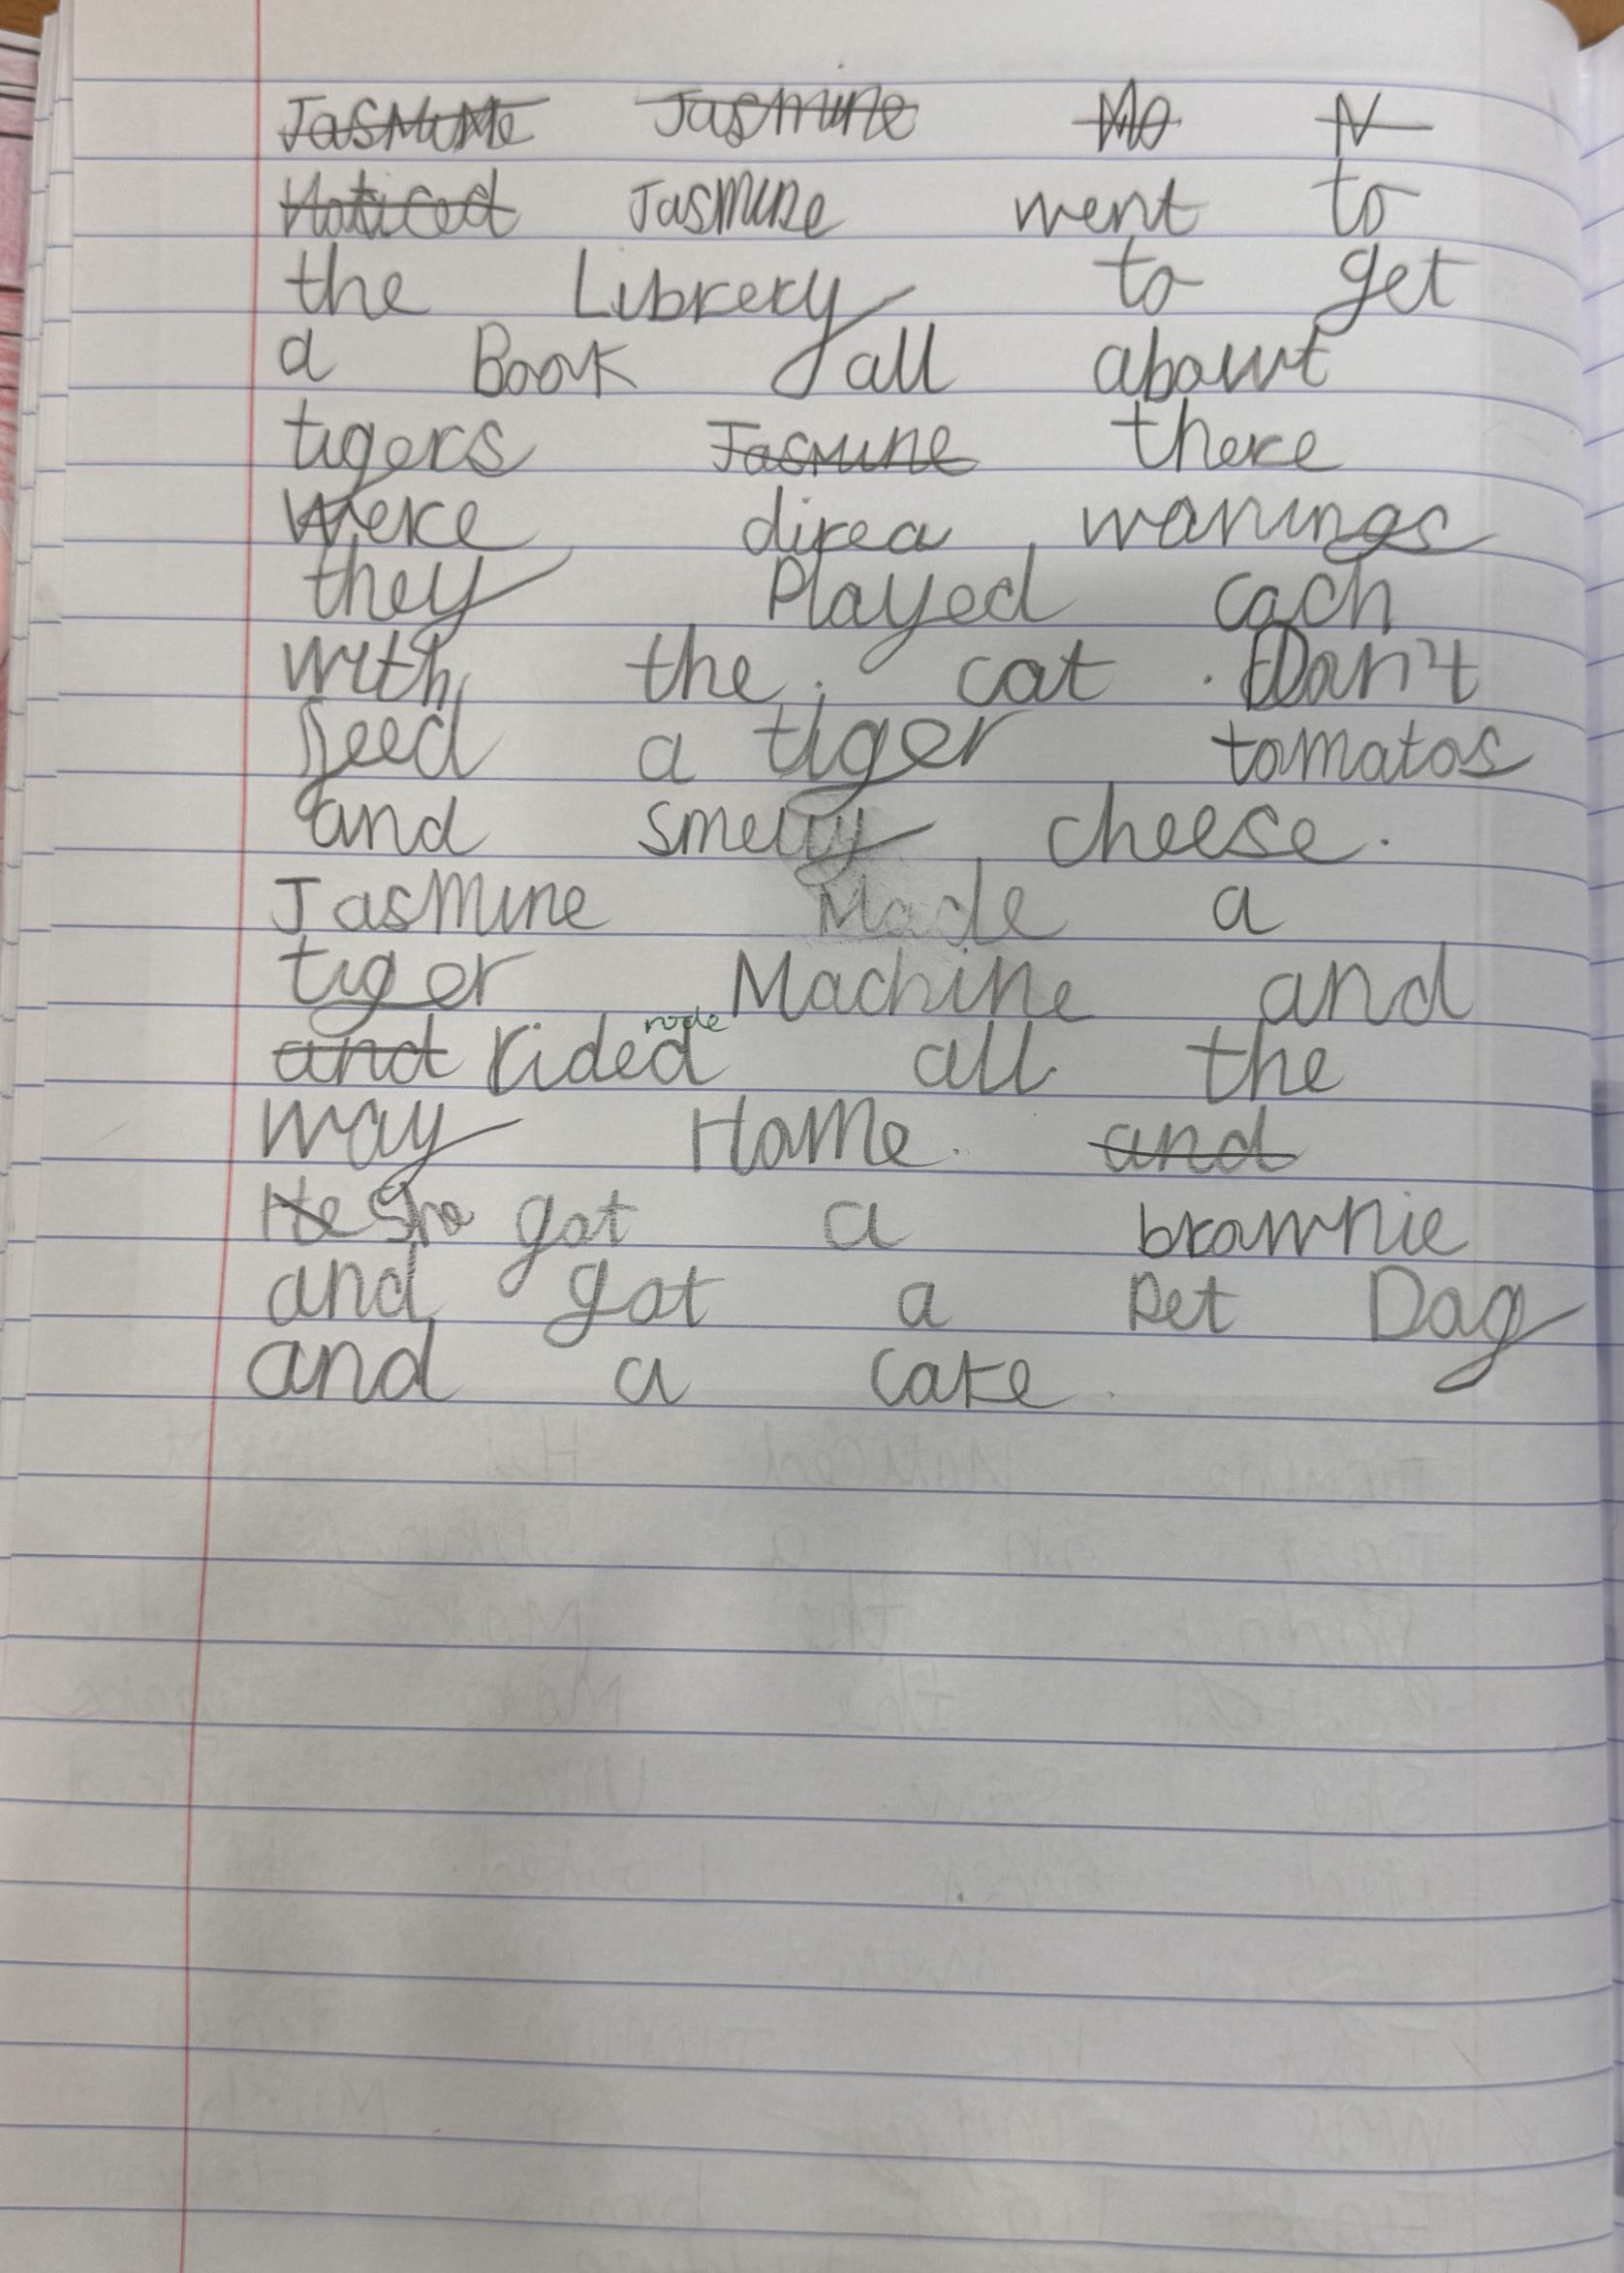 Jasmine Jasmine Mo N
Noticed Jasmine went to
the Librery to get
a Book all abowt
tigers Jasmine there
were direa wanings
they Played cach
with the cat. Don't
feed a tiger tomatos
and smelly cheese.
Jasmine Made a
tiger Machine and
and rided rode all the
way Home. and
He She got a brownie
and got a Pet Dog
and a cake.